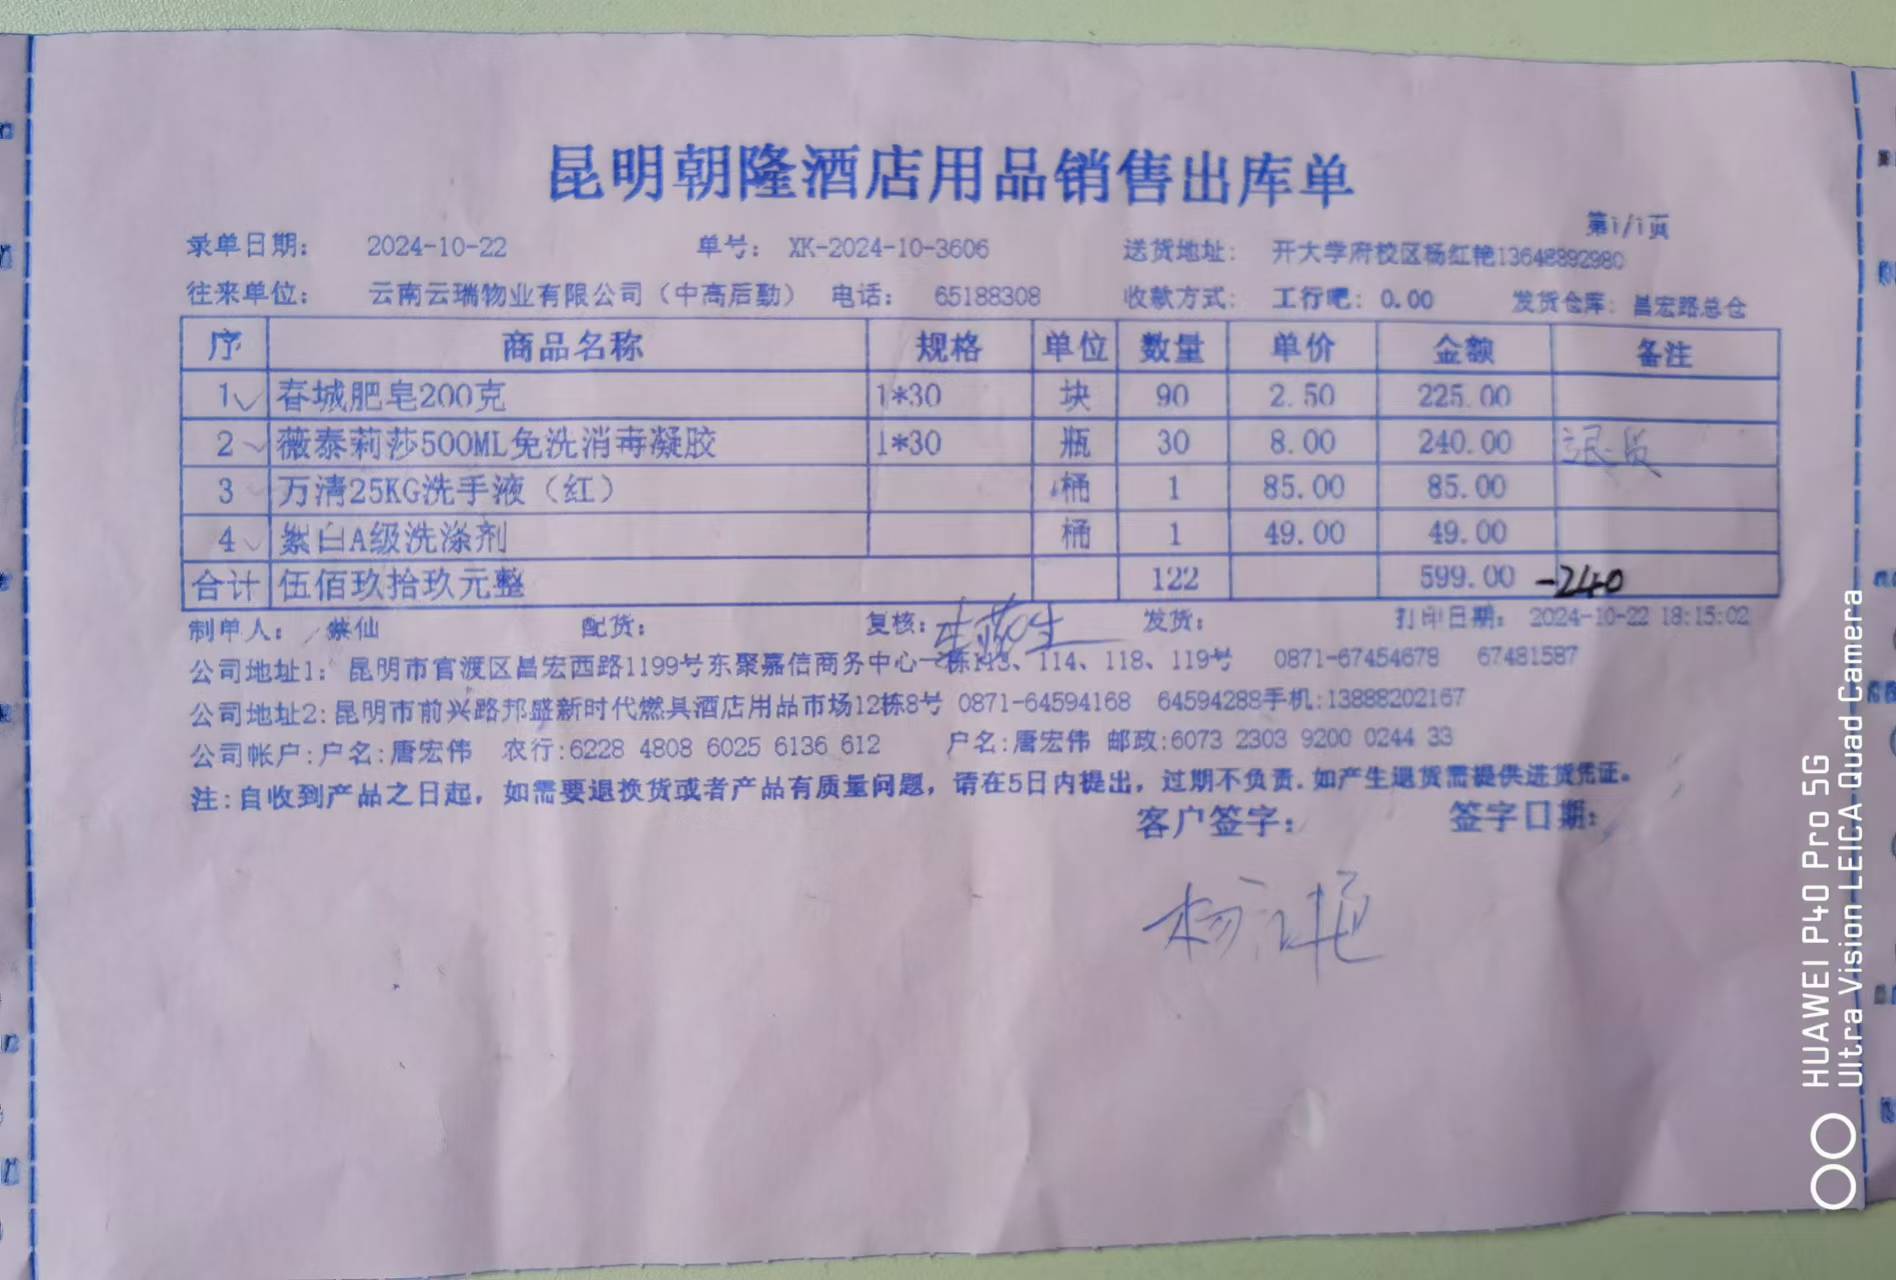 昆明朝隆酒店用品销售出库单
第1/1页
录单日期: 2024-10-22 单号: XK-2024-10-3606 送货地址: 开大学府校区杨红艳13648892980
往来单位: 云南云瑞物业有限公司（中高后勤） 电话: 65188308 收款方式: 工行吧: 0.00 发货仓库: 昌宏路总仓
序 商品名称 规格 单位 数量 单价 金额 备注
1 春城肥皂200克 1*30 块 90 2.50 225.00
2 薇泰莉莎500ML免洗消毒凝胶 1*30 瓶 30 8.00 240.00
3 万清25KG洗手液（红） 桶 1 85.00 85.00
4 絮白A级洗涤剂 桶 1 49.00 49.00
合计 伍佰玖拾玖元整 122 599.00 -240
制单人: 蔡仙 配货: 复核: 发货: 打印日期: 2024-10-22 18:15:02
公司地址1: 昆明市官渡区昌宏西路1199号东聚嘉信商务中心一栋113、114、118、119号 0871-67454678 67481587
公司地址2:昆明市前兴路邦盛新时代燃具酒店用品市场12栋8号 0871-64594168 64594288手机:13888202167
公司帐户:户名:唐宏伟 农行:6228 4808 6025 6136 612 户名:唐宏伟 邮政:6073 2303 9200 0244 33
注:自收到产品之日起，如需要退换货或者产品有质量问题，请在5日内提出，过期不负责.如产生退货需提供进货凭证。
客户签字: 签字日期:
杨红艳
HUAWEI P40 Pro 5G
Ultra Vision LEICA Quad Camera